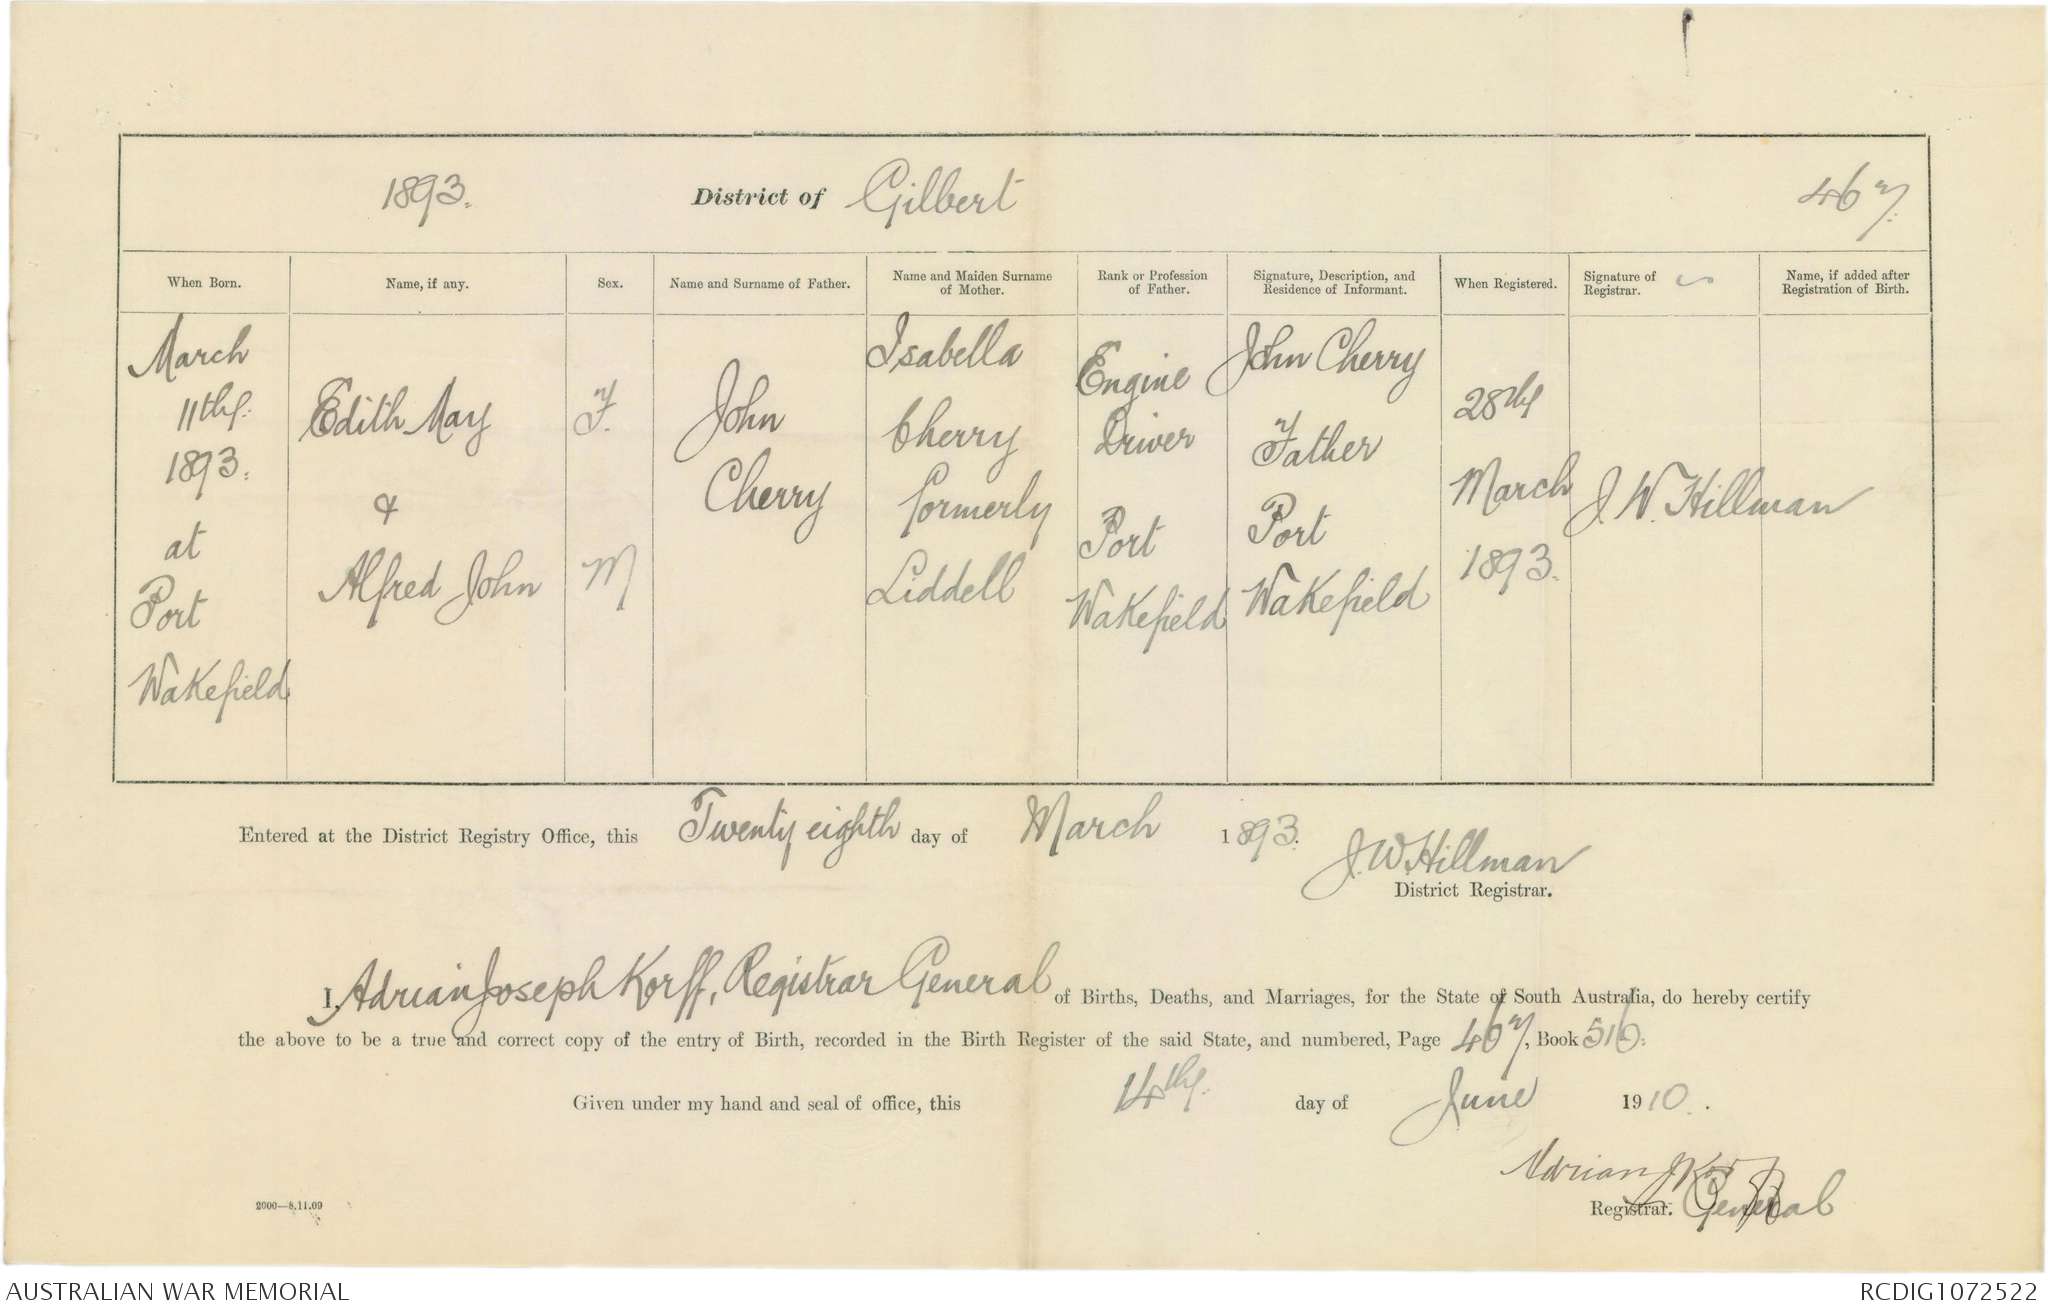 1893. District of Gilbert 467.
When Born. Name, if any. Sex. Name and Surname of Father. Name and Maiden Surname of Mother. Rank or Profession of Father. Signature, Description, and Residence of Informant. When Registered. Signature of Registrar. Name, if added after Registration of Birth.
March
11th.
1893.
at
Port
Wakefield
Edith May
&
Alfred John
F.
M
John
Cherry
Isabella
Cherry
formerly
Liddell
Engine
Driver
Port
Wakefield
John Cherry
Father
Port
Wakefield
28th
March
1893.
J. W. Hillman
Entered at the District Registry Office, this Twenty eighth day of March 1893.
J. W. Hillman
District Registrar.
I, Adrian Joseph Korff, Registrar General of Births, Deaths, and Marriages, for the State of South Australia, do hereby certify
the above to be a true and correct copy of the entry of Birth, recorded in the Birth Register of the said State, and numbered, Page 467, Book 516.
Given under my hand and seal of office, this 14th. day of June 1910.
Adrian J Korff
2000—8.11.09
Registrar. General
AUSTRALIAN WAR MEMORIAL RCDIG1072522